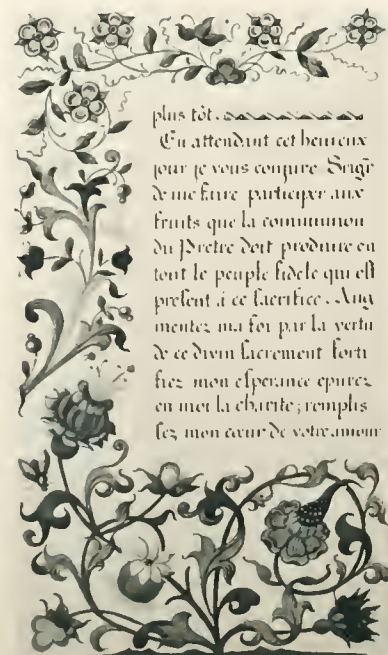 plus tôt.
En attendant cet heureux
jour je vous conjure Seigr
de me faire participer aux
fruits que la communion
du Pretre doit produire en
tout le peuple fidele qui eſt
preſent à ce ſacrifice. Aug
mentez ma foi par la vertu
de ce divin ſacrement forti
fiez mon eſperance epurez
en moi la charite; remplis
ſez mon cœur de votre amour